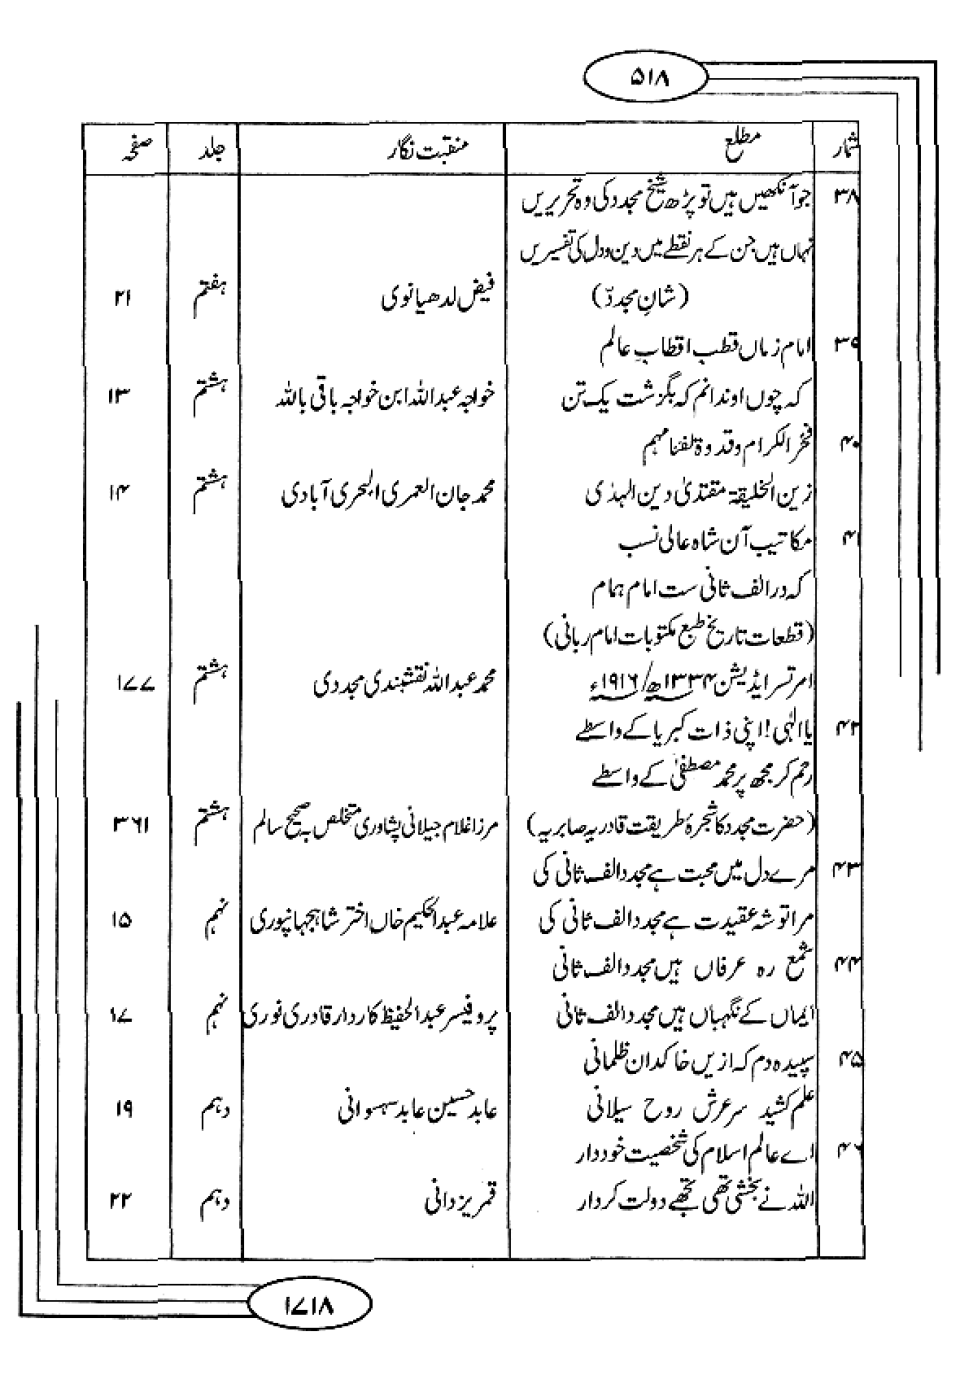 ۵۱۸
شمار مطلع منقبت نگار جلد صفحہ
۳۸ جو آنکھیں ہیں تو پڑھ شیخ مجدد کی وہ تحریریں
نہاں ہیں جن کے ہر نقطے میں دین و دل کی تفسیریں
(شانِ مجددّ) فیض لدھیانوی ہفتم ۲۱
۳۹ امام زماں قطب اقطابِ عالم
کہ چوں او ندانم کہ بگزشت یک تن خواجہ عبداللہ ابن خواجہ باقی باللہ ہشتم ۱۳
۴۰ فخر الکرام و قدوۃ لفنا مہم
زین الخلیقۃ مقتدیٰ دین الہدٰی محمد جان العمری البحری آبادی ہشتم ۱۴
۴۱ مکاتیب آن شاہ عالی نسب
کہ در الف ثانی ست امام ہمام
(قطعات تاریخ طبع مکتوبات امام ربانی)
امرتسر ایڈیشن ۱۳۳۴ھ/۱۹۱۶ء محمد عبداللہ نقشبندی مجددی ہشتم ۱۷۷
۴۲ یا الٰہی! اپنی ذات کبریا کے واسطے
رحم کر مجھ پر محمد مصطفیٰ کے واسطے
(حضرت مجدد کا شجرۂ طریقت قادریہ صابریہ) مرزا غلام جیلانی پشاوری متخلص بہ صحیح سالم ہشتم ۳۶۱
۴۳ مرے دل میں محبت ہے مجدد الف ثانی کی
مرا توشہ عقیدت ہے مجدد الف ثانی کی علامہ عبدالحکیم خاں اختر شاہجہانپوری نہم ۱۵
۴۴ شمع رہ عرفاں ہیں مجدد الف ثانی
ایماں کے نگہباں ہیں مجدد الف ثانی پروفیسر عبدالحفیظ کاردار قادری نوری نہم ۱۷
۴۵ سپیدہ دم کہ ازیں خاکدان ظلمانی
علم کشید سر عرش روح سیلانی عابد حسین عابد سہسوانی دہم ۱۹
۴۶ اے عالم اسلام کی شخصیت خوددار
اللہ نے بخشی تھی تجھے دولت کردار قمر یزدانی دہم ۲۲
۱۷۱۸